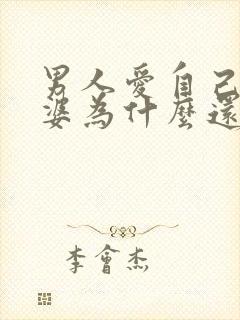 男人愛自己
婆為什麼還
李會杰